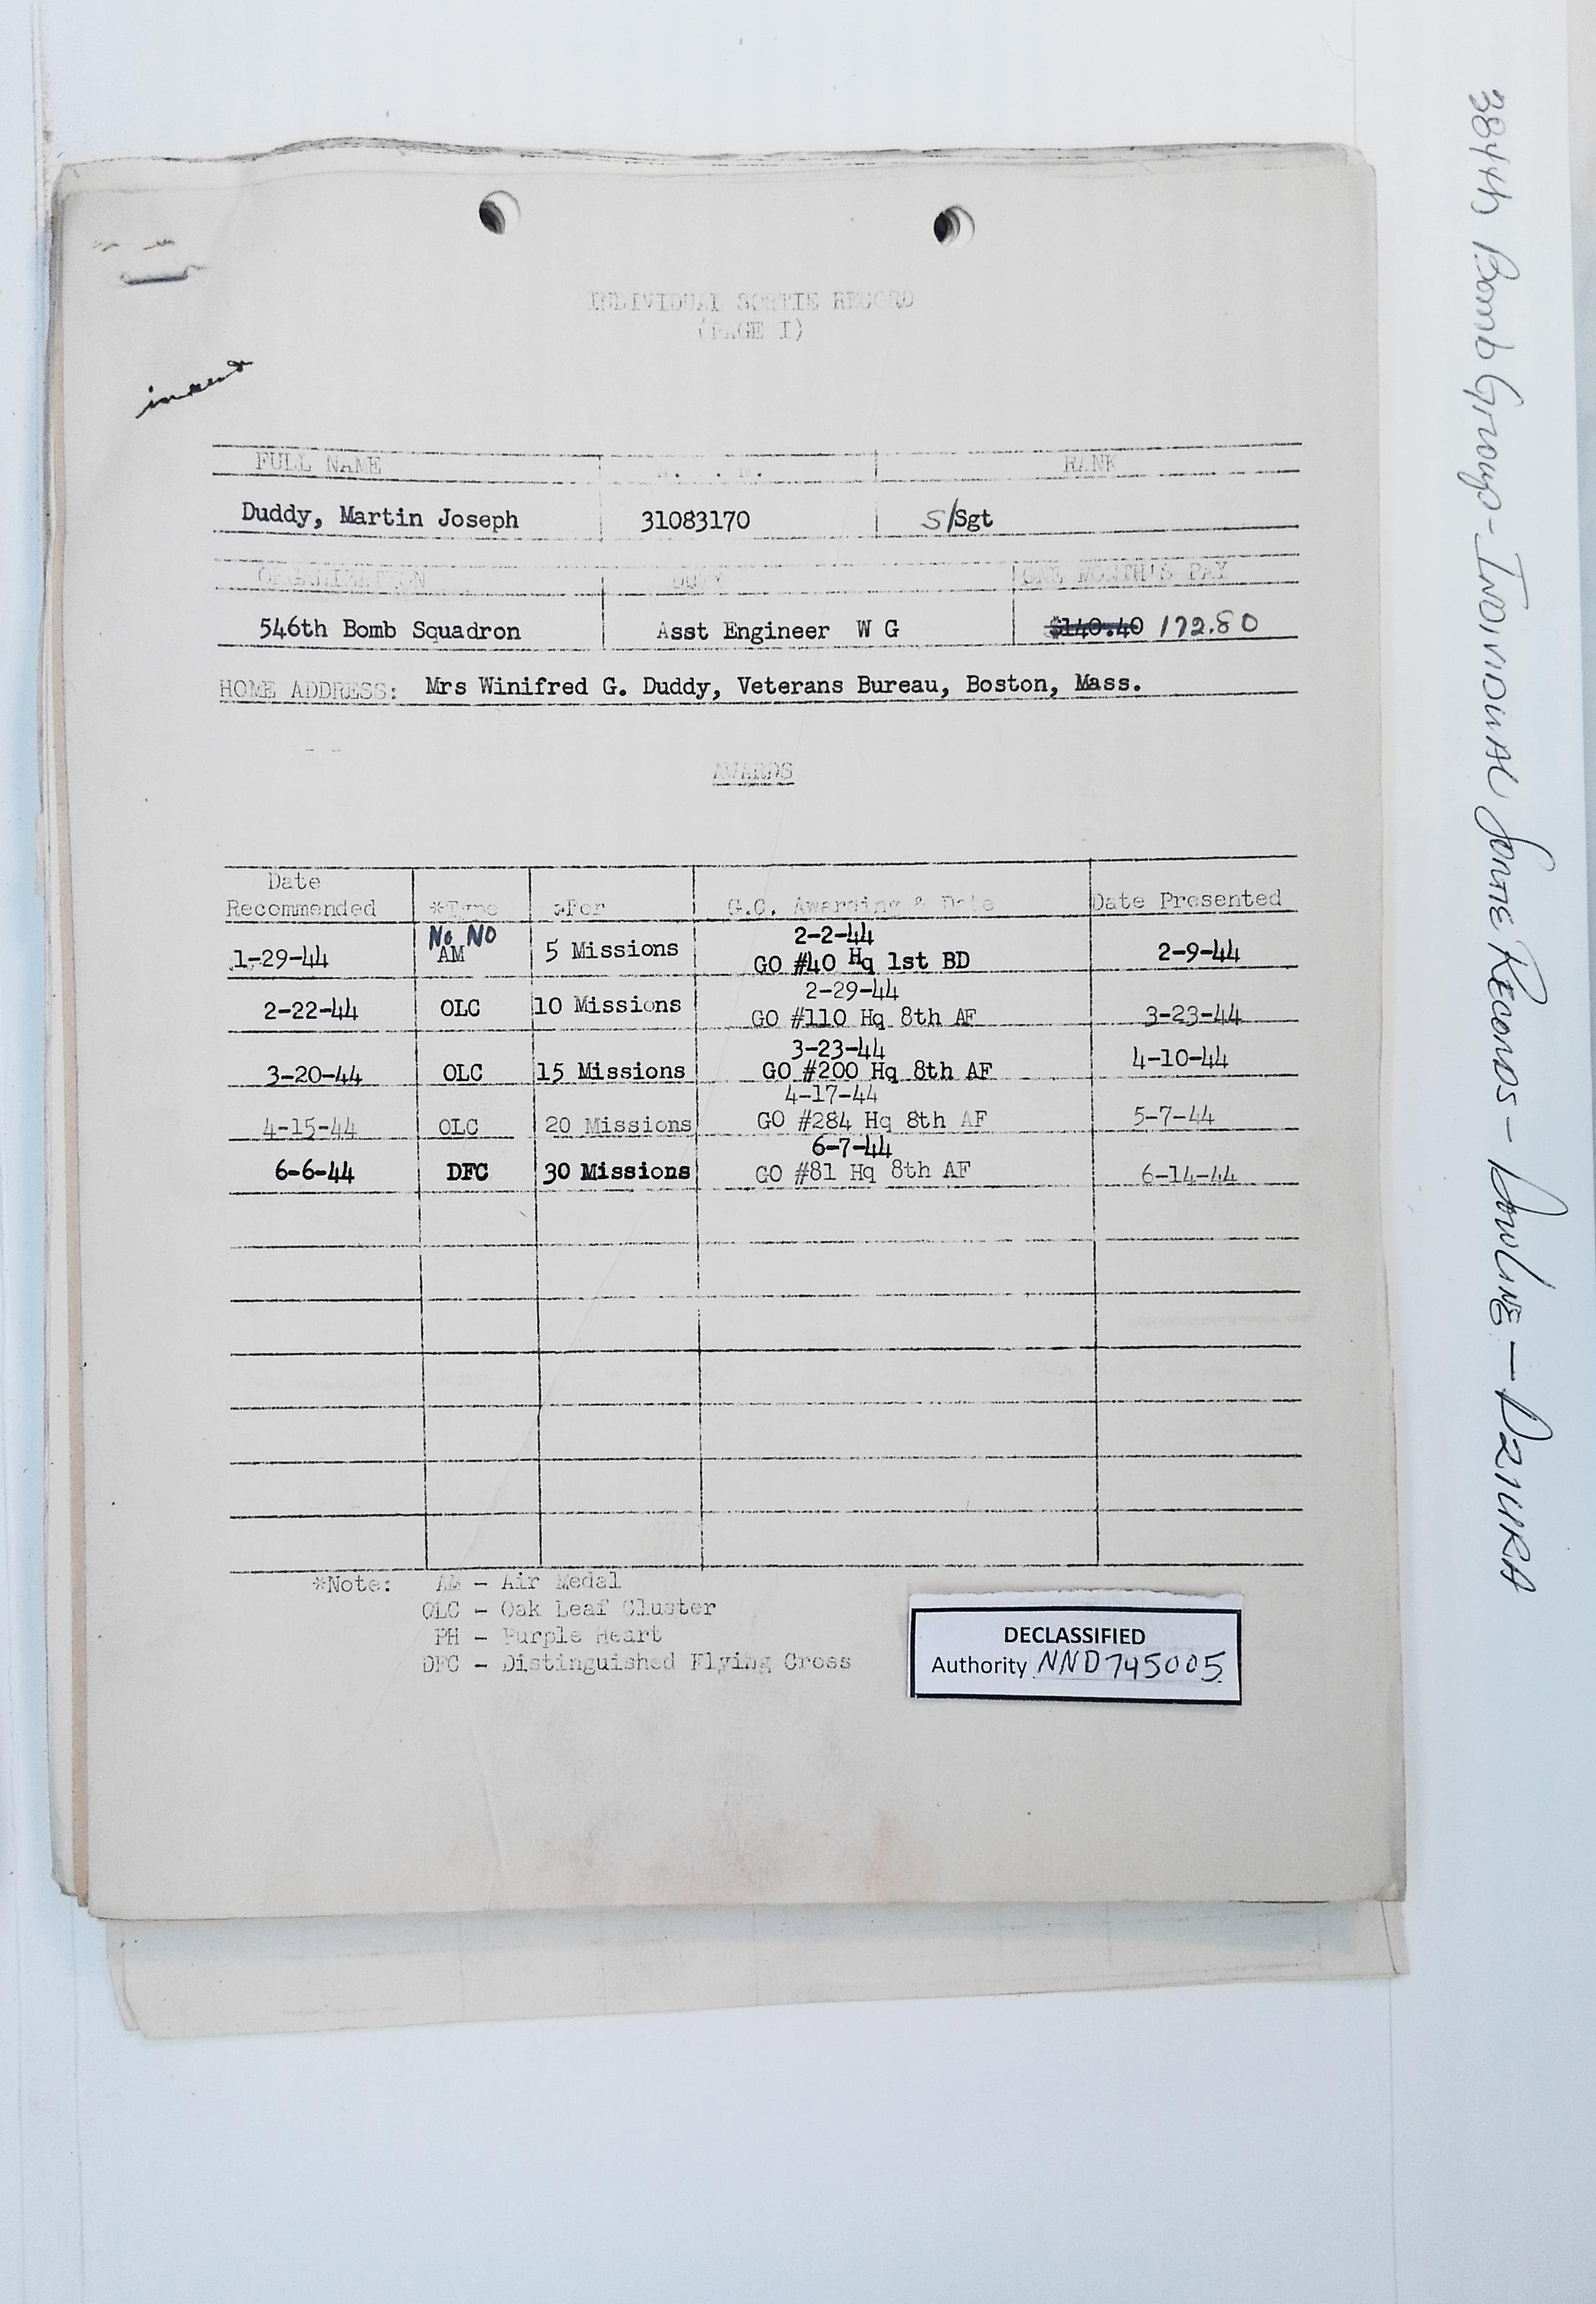 INDIVIDUAL SORTIE RECORD
(PAGE I)
FULL NAME RANK
Duddy, Martin Joseph 31083170 S/Sgt
ORGANIZATION DUTY ONE MONTH'S PAY
546th Bomb Squadron Asst Engineer W G $140.40 172.80
HOME ADDRESS: Mrs Winifred G. Duddy, Veterans Bureau, Boston, Mass.
AWARDS
Date
Recommended *Type *For G.O. Awarding & Date Date Presented
No NO 2-2-44
1-29-44 AM 5 Missions GO #40 Hq 1st BD 2-9-44
2-29-44
2-22-44 OLC 10 Missions GO #110 Hq 8th AF 3-23-44
3-23-44
3-20-44 OLC 15 Missions GO #200 Hq 8th AF 4-10-44
4-17-44
4-15-44 OLC 20 Missions GO #284 Hq 8th AF 5-7-44
6-7-44
6-6-44 DFC 30 Missions GO #81 Hq 8th AF 6-14-44
*Note: AM - Air Medal
OLC - Oak Leaf Cluster
PH - Purple Heart
DFC - Distinguished Flying Cross
DECLASSIFIED
Authority NND745005
384th Bomb Group - INDIVIDUAL SORTIE RECORDS - DOWLING - DZIURA